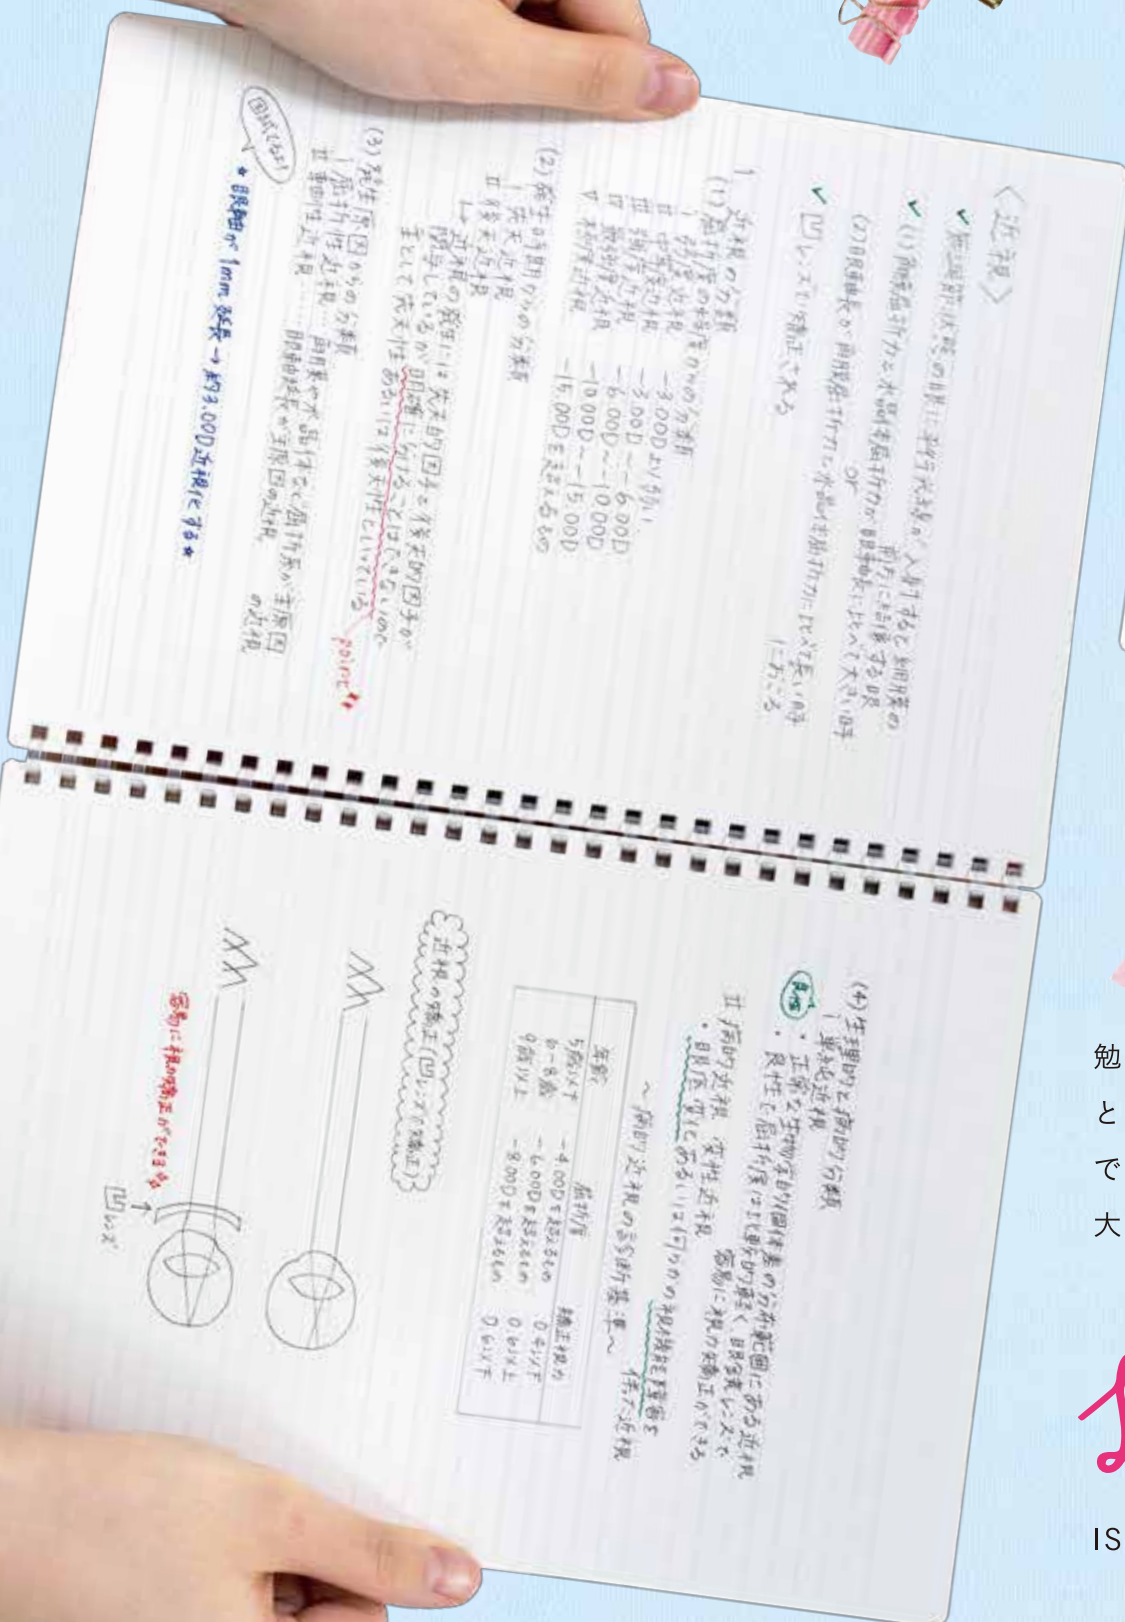 〈近視〉
✓ 無調節状態の眼に平行光線が入射すると網膜の
前方に結像する眼
✓ (1) 角膜屈折力や水晶体屈折力が眼軸長に比べて大きい時
or
(2) 眼軸長が角膜屈折力と水晶体屈折力に比べて長い時
におこる
✓ 凹レンズで矯正される
1 近視の分類
(1) 屈折度の程度からの分類
i 弱度近視 -3.00Dより弱い
ii 中等度近視 -3.00D~-6.00D
iii 強度近視 -6.00D~-10.00D
iv 最強度近視 -10.00D~-15.00D
v 極度近視 -15.00Dを超えるもの
(2) 発生時期からの分類
i 先天近視
ii 後天近視
↳ 近視の発生には先天的因子と後天的因子が
関与しているが明確に分けることはできないので
主として先天性あるいは後天性といっている
point
(3) 発生原因からの分類
i 屈折性近視…角膜や水晶体など屈折系が主原因
の近視
ii 軸性近視……眼軸延長が主原因の近視
★眼軸が1mm延長→約3.00D近視化する★
(4) 生理的と病的分類
i 単純近視
・正常な生物学的個体差の分布範囲にある近視
良性 ・良性で屈折度は比較的軽く眼鏡レンズで
容易に視力矯正ができる
ii 病的近視 変性近視
・眼底変化あるいは何らかの視機能障害を
伴った近視
~病的近視の診断基準~
年齢 屈折度 矯正視力
5歳以下 -4.00Dを超えるもの 0.4以下
6-8歳 -6.00Dを超えるもの 0.6以上
9歳以上 -8.00Dを超えるもの 0.6以下
近視の矯正(凹レンズで矯正)
容易に視力矯正ができる
凹レンズ
勉
と
で
大
IS